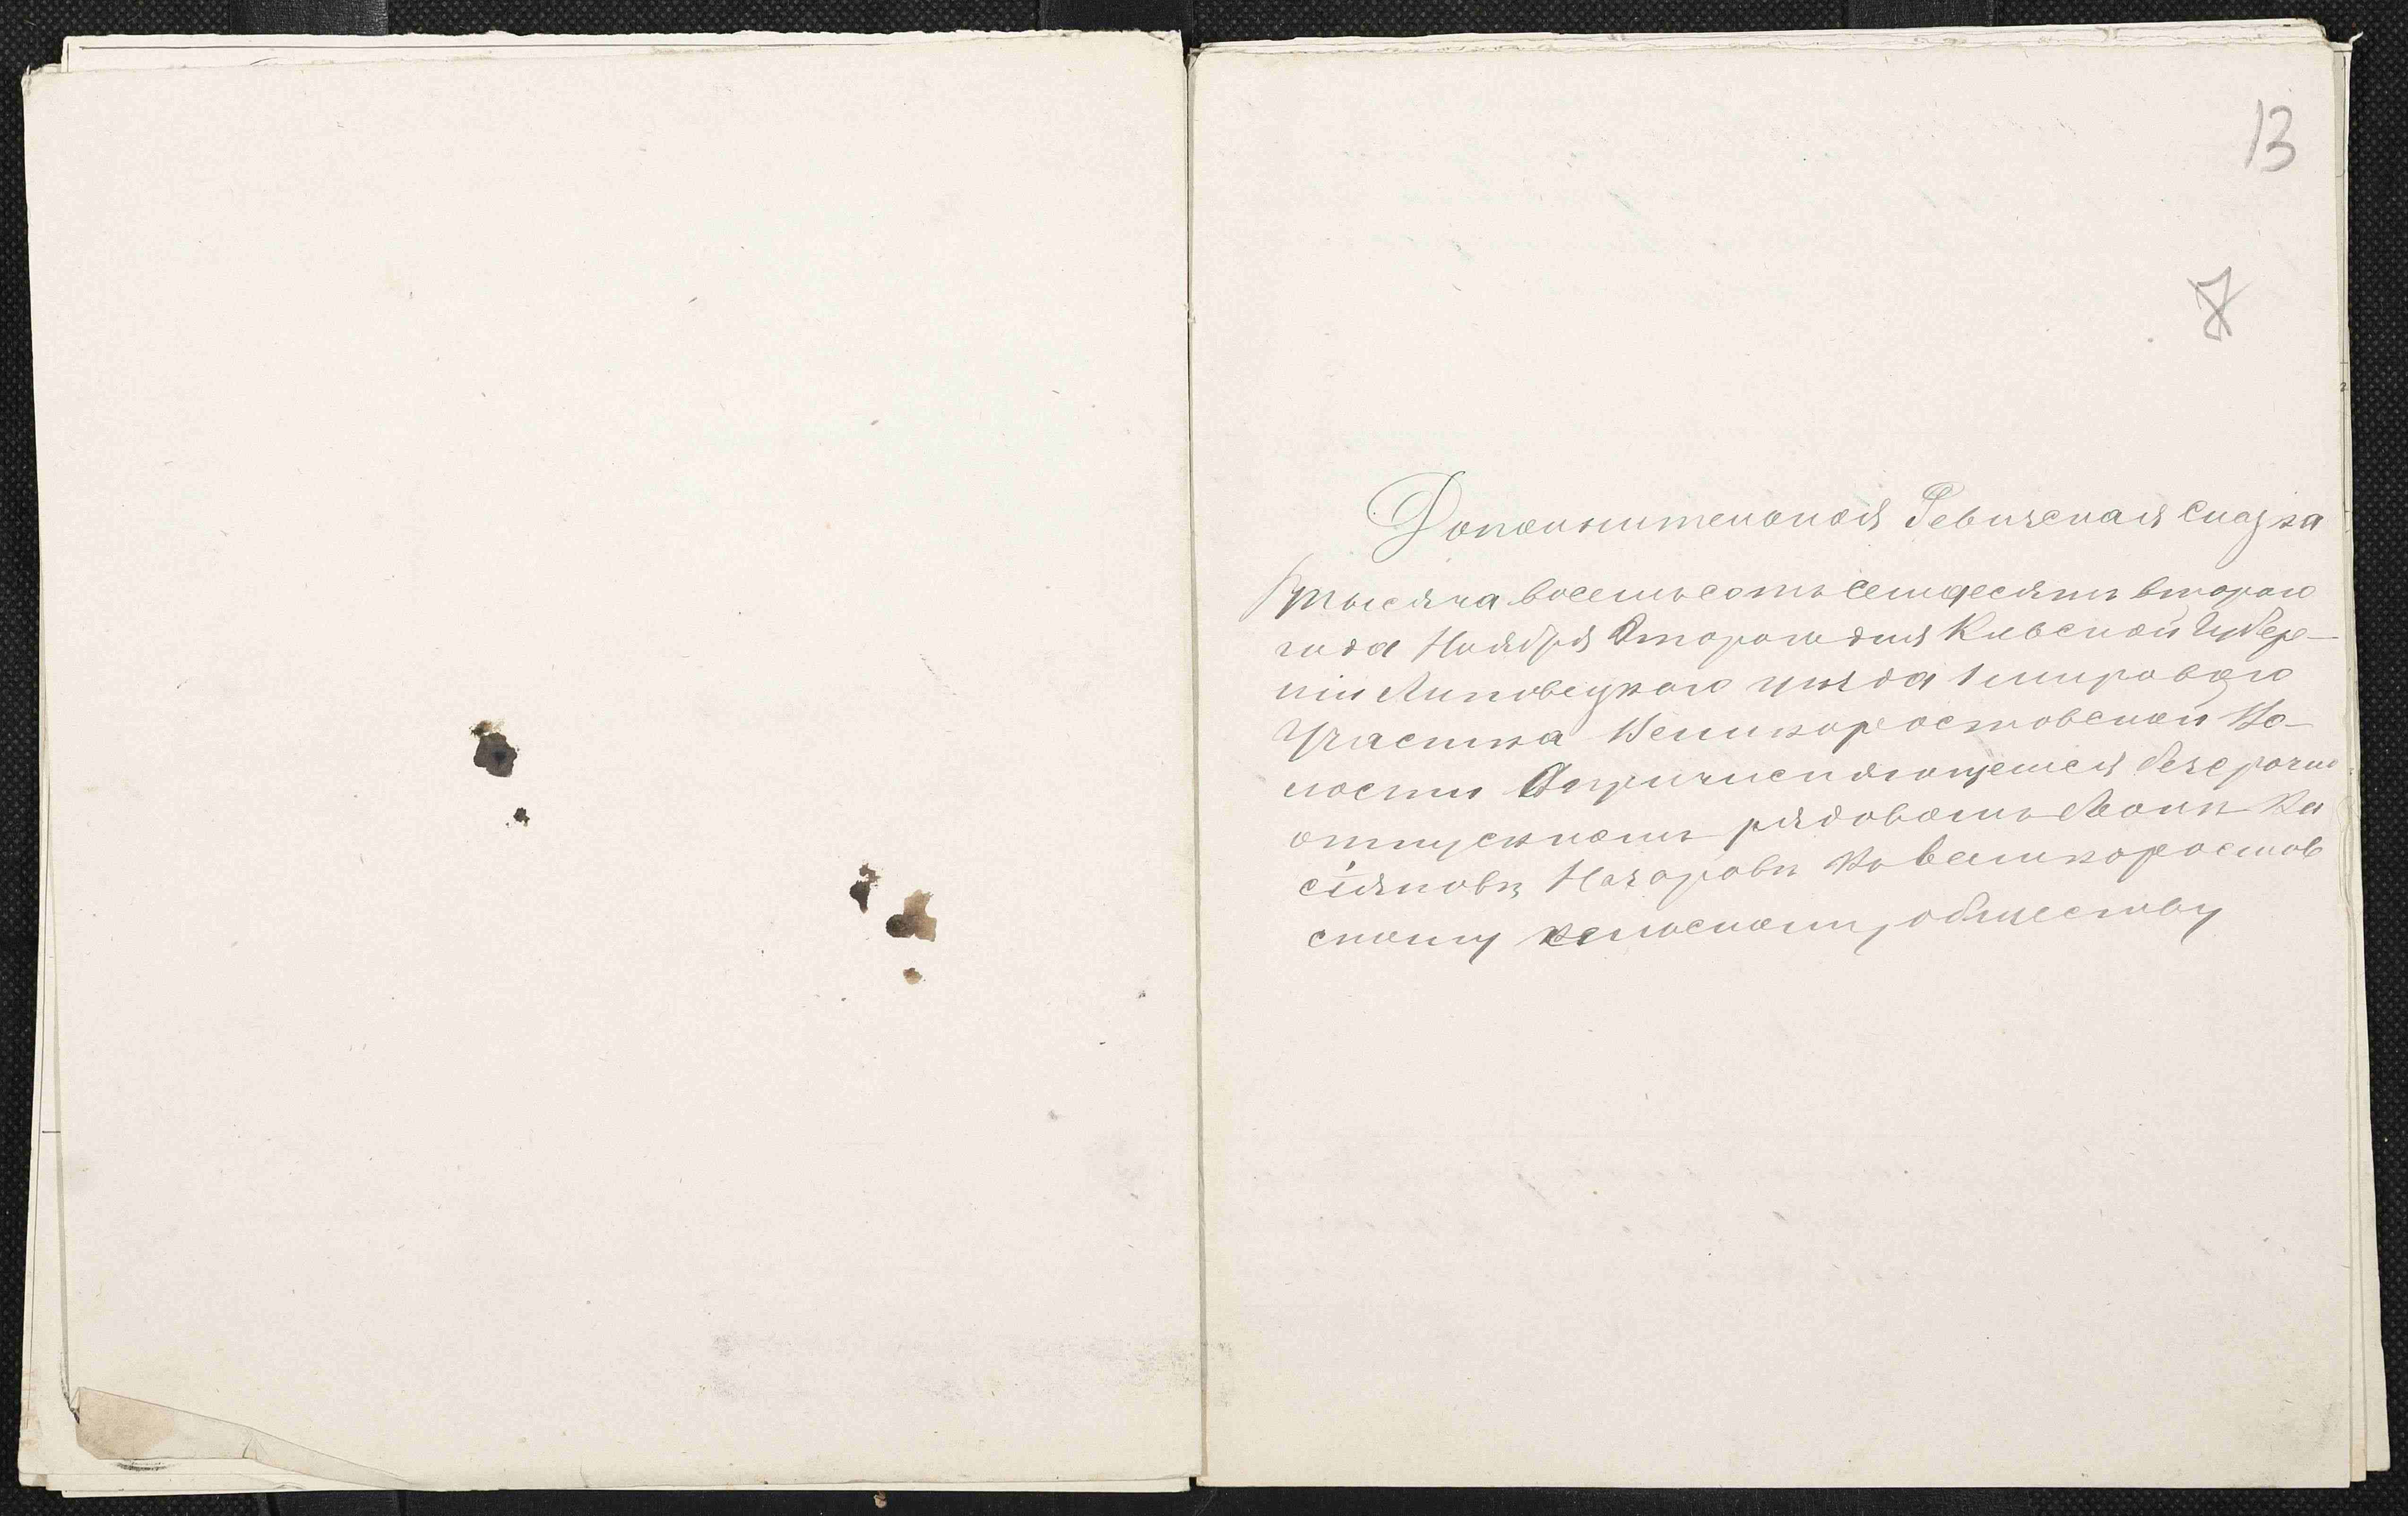 13
7
Дополнительная Ревизская сказка
Тысяча восемьсотъ семдесятъ второго
года Ноября Второго дня Киевской Губер-
ніи Липовецкого уѣзда 1 мирового
Участка Великоростовской Во-
лости О причисляющемся безсрочно
отпускномъ рядовомъ Ка
сіяновъ Назаровъ Ко великоростов
скому сельскому обществу